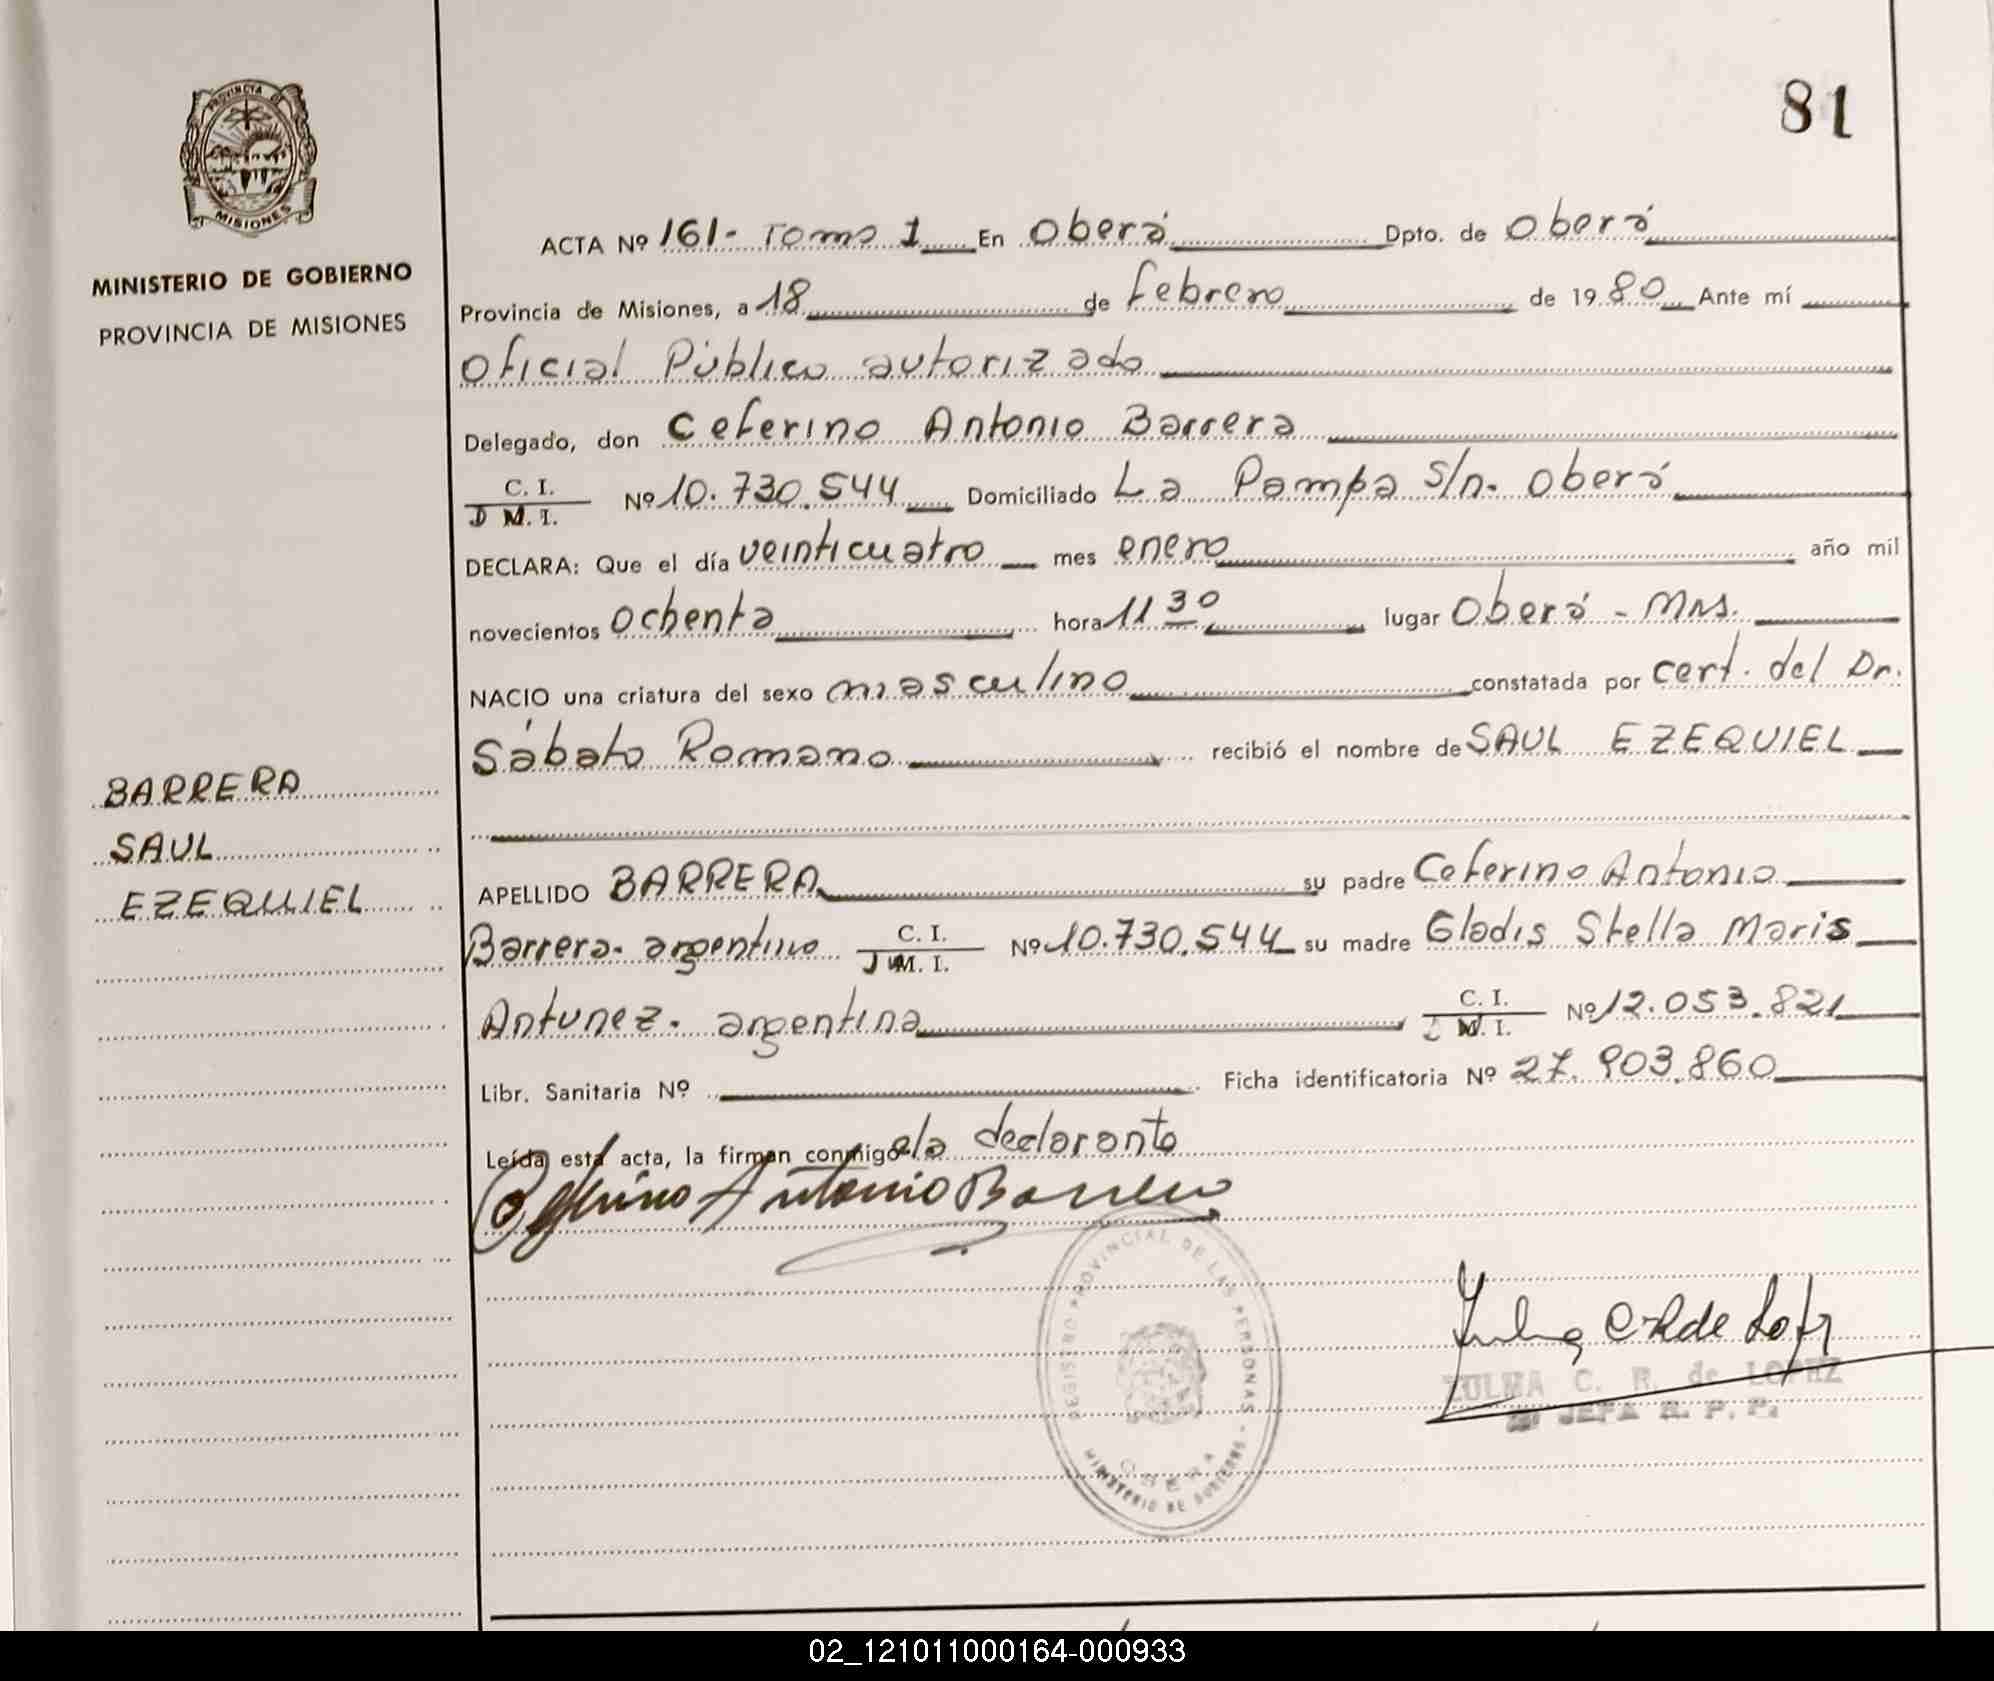 81
PROVINCIA DE
MISIONES
MINISTERIO DE GOBIERNO
PROVINCIA DE MISIONES
ACTA Nº 161- Tomo 1 En Oberá Dpto. de Oberá
Provincia de Misiones, a 18 de febrero de 1980 Ante mí
Oficial Público autorizado
Delegado, don Ceferino Antonio Barrera
C. I.
D M. I. Nº 10.730.544 Domiciliado La Pampa s/n. Oberá
DECLARA: Que el día veinticuatro mes enero año mil
novecientos ochenta hora 11 30 lugar Oberá - Mns.
NACIO una criatura del sexo masculino constatada por cert. del Dr.
Sábato Romano recibió el nombre de SAUL EZEQUIEL
BARRERA
SAUL
EZEQUIEL
APELLIDO BARRERA su padre Ceferino Antonio
Barrera. argentino C. I.
M. I. Nº 10.730.544 su madre Gladis Stella Maris
Antunez. argentina C. I.
M. I. Nº 12.053.821
Libr. Sanitaria Nº Ficha identificatoria Nº 27.903.860
Leída esta acta, la firman conmigo ela declarante
Ceferino Antonio Barrera
REGISTRO PROVINCIAL DE LAS PERSONAS - MINISTERIO DE GOBIERNO
OBERA
ZULMA C. R. de LOPEZ
JEFA R. P. P.
02_121011000164-000933